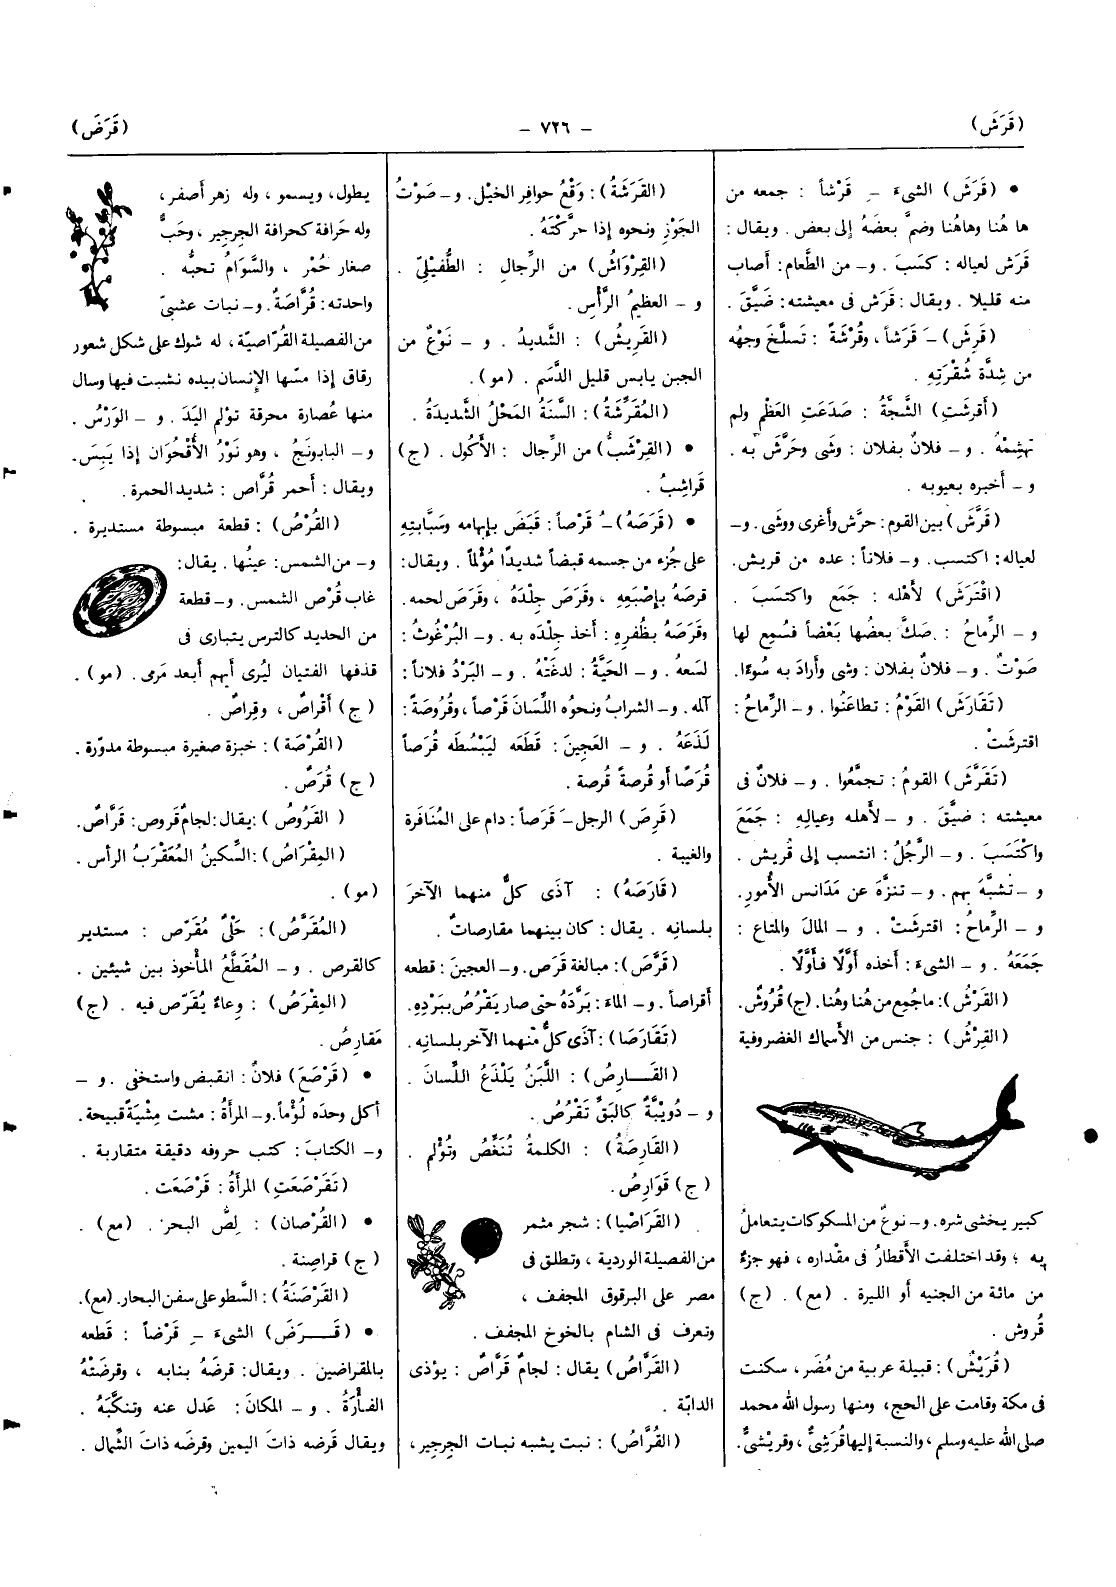 (قَرَشَ)
- ٧٢٦ -
(قَرَضَ)
• (قَرَشَ) الشيءَ ـِ قَرْشاً : جمعه من
ها هُنا وهاهُنا وضمَّ بعضَهُ إلى بعض . ويقال :
قَرَش لعياله : كسَبَ . و- من الطَّعام: أصاب
منه قليلا . ويقال : قَرَش فى معيشته : ضَيَّقَ .
(قَرِشَ) ـَ قَرَشاً ، وقُرْشَةً : تَسلَّخَ وجهُه
من شِدَّة شُقْرَتِهِ .
(أقرشَتِ) الشَّجَّةُ : صَدَعَتِ العَظْم ولم
تهشِمْهُ . و- فلانٌ بفلان : وشى وحَرَّش به .
و- أخبره بعيوبه .
(قَرَّشَ) بين القوم : حرَّش وأغرى ووشى . و-
لعياله : اكتسب . و- فلاناً : عده من قريش .
(اقْتَرَشَ) لأهله : جَمَع واكتسَبَ .
و- الرِّماحُ : صَكَّ بعضُها بَعْضاً فسُمِع لها
صَوْتٌ . و- فلانٌ بفلان : وشى وأرادَ به سُوءًا .
(تَقَارَشَ) القَوْمُ : تطاعَنُوا . و- الرِّماحُ :
اقترشَتْ .
(تَقَرَّشَ) القومُ : تجمَّعُوا . و- فلانٌ فى
معيشته : ضيَّقَ . و- لأهله وعيالِهِ : جَمَعَ
واكْتَسَبَ . و- الرَّجُلُ : انتسب إلى قُريش .
و- تشبَّهَ بهم . و- تنزَّهَ عن مَدَانس الأُمورِ.
و- الرِّماحُ : اقترشَتْ . و- المالَ والمتاع :
جَمَعَهُ . و- الشيءَ : أخذه أوَّلًا فأوَّلًا .
(القَرْشُ) : ما جُمِع من هُنا وهُنا. (ج) قُروُشٌ.
(القِرْشُ) : جنس من الأسماك الغضروفية
كبير يخشى شره. و- نوعٌ من المسكوكات يتعاملُ
به ؛ وقد اختلفت الأقطارُ فى مقْداره ، فهو جزءٌ
من مائة من الجنيه أو الليرة . (مع) . (ج)
قُروش .
(قُرَيْشٌ) : قبيلة عربية من مُضَر ، سكنت
فى مكة وقامت على الحج ، ومنها رسول الله محمد
صلى الله عليه وسلم ، والنسبة إليها قُرَشِيٌّ ، وقريْشيٌّ.
(القَرَشَةُ) : وَقْعُ حوافِر الخيْل. و- صَوْتُ
الجَوْزِ ونحوه إذا حرَّكْتَهُ .
(القِرْواشُ) من الرِّجال : الطُّفيْلِيّ .
و- العظيمُ الرَّأْسِ .
(القَرِيشُ) : الشَّديدُ . و- نَوْعٌ من
الجبن يابس قليل الدَّسَم . (مو).
(المُقَرِّشَةُ) : السَّنَةُ المَحْلُ الشَّديدَةُ .
• (القِرْشَبُّ) من الرِّجال : الأَكُول . (ج)
قَراشِبُ .
• (قَرَصَهُ) ـُ قَرْصاً : قَبَضَ بإبهامه وسَبَّابتِهِ
على جُزء من جسمه قبضاً شديدًا مُؤْلماً . ويقال :
قرصَهُ بإصْبَعِهِ ، وقَرَص جِلْدَهُ ، وقَرَص لحمه .
وقَرَصَهُ بظُفرِهِ : أخذ جِلْدَه به . و- البُرْغُوثُ :
لسَعهُ . و- الحَيَّةُ : لدغَتْهُ . و- البَرْدُ فلاناً :
آلمه . و- الشرابُ ونحوُه اللِّسَانَ قَرْصاً ، وقُرُوصَةً :
لَذَعَهُ . و- العَجِينَ : قَطَعَه ليَبْسُطَه قُرصاً
قُرَصًا أو قُرصةً قُرصة .
(قَرِصَ) الرجل ـَ قَرَصاً : دام على المُنَافَرة
والغيبة .
(قَارَصَهُ) : آذَى كلٌّ منهما الآخرَ
بلسانِه . يقال : كان بينهما مقارصاتٌ .
(قَرَّصَ) : مبالغة قَرَص . و- العجينَ : قطعه
أقراصاً . و- الماءَ : بَرَّدَهُ حتى صار يَقْرُصُ ببَرْدِهِ.
(تَقَارَصَا) : آذَى كلٌّ منْهما الآخر بلسانِه .
(القَـــارِصُ) : اللَّبَنُ يَلْذَعُ اللِّسانَ .
و- دُوَيْبَّةٌ كالبَقِّ تَقْرُصُ .
(القَارِصَةُ) : الكلمةُ تُنَغِّصُ وتُؤْلم .
(ج) قَوَارِصُ .
(القَرَاصْيا) : شجر مثمر
من الفصيلة الوردية ، وتطلق فى
مصر على البرقوق المجفف ،
وتعرف فى الشام بالخوخ المجفف .
(القَرَّاصُ) يقال : لجامٌ قَرَّاصٌ : يؤذى
الدابّة .
(القُرَّاصُ) : نبت يشبه نبات الجرجير ،
يطول ، ويسمو ، وله زهر أصفر ،
وله حَرافة كحرافة الجرجير ، وحَبٌّ
صغار حُمْر ، والسَّوَامُ تحبُّه .
واحدته : قُرَّاصَةٌ . و- نبات عشبىّ
من الفصيلة القُرّاصيّة ، له شوك على شكل شعور
رقاق إذا مسّها الإنسان بيده نشبت فيها وسال
منها عُصارة محرقة تؤلم اليَدَ . و- الوَرْسُ .
و- البابونَجُ ، وهو نَوْرُ الأُقْحُوَان إذا يَبِسَ .
ويقال : أحمر قُرَّاص : شديد الحمرة .
(القُرْصُ) : قطعة مبسوطة مستديرة .
و- من الشمس : عينُها . يقال :
غاب قُرْص الشمس . و- قطعة
من الحديد كالترس يتبارى فى
قذفها الفتيان ليُرى أيهم أبعد مَرمى . (مو) .
(ج) أَقْراصٌ ، وقِراصٌ .
(القُرْصَة) : خبزة صغيرة مبسوطة مدوّرة .
(ج) قُرَصٌ .
(القَرُوصُ) : يقال : لجامٌ قَروص : قَرَّاصٌ .
(المِقْراصُ) : السِّكينُ المُعَقْرَبُ الرأس .
(مو) .
(المُقَرَّصُ) : حَلْىٌ مُقَرّص : مستدير
كالقرص . و- المُقَطَّعُ المأخوذ بين شيئين .
(المِقْرَصُ) : وِعاءٌ يُقَرّص فيه . (ج)
مَقارِصُ .
• (قَرْصَعَ) فلانٌ : انقبض واستخفى . و-
أكل وحدَه لُؤْماً. و- المرأةُ : مشت مِشْيَةً قبيحة .
و- الكتابَ : كتب حروفه دقيقة متقاربة .
(تَقَرْصَعَتِ) المرأةُ : قَرْصَعَت .
• (القُرْصان) : لِصُّ البحر . (مع) .
(ج) قراصِنة .
(القَرْصَنَةُ) : السَّطو على سفن البحار. (مع).
• (قَــــرَضَ) الشيءَ ـِ قَرْضاً : قَطَعه
بالمقراضين . ويقال : قرضَهُ بنابه ، وقرضَتْهُ
الفَأْرَةُ . و- المكانَ : عَدل عنه وتنكَّبَهُ .
ويقال قَرضه ذاتَ اليمين وقرضَه ذاتَ الشِّمال .